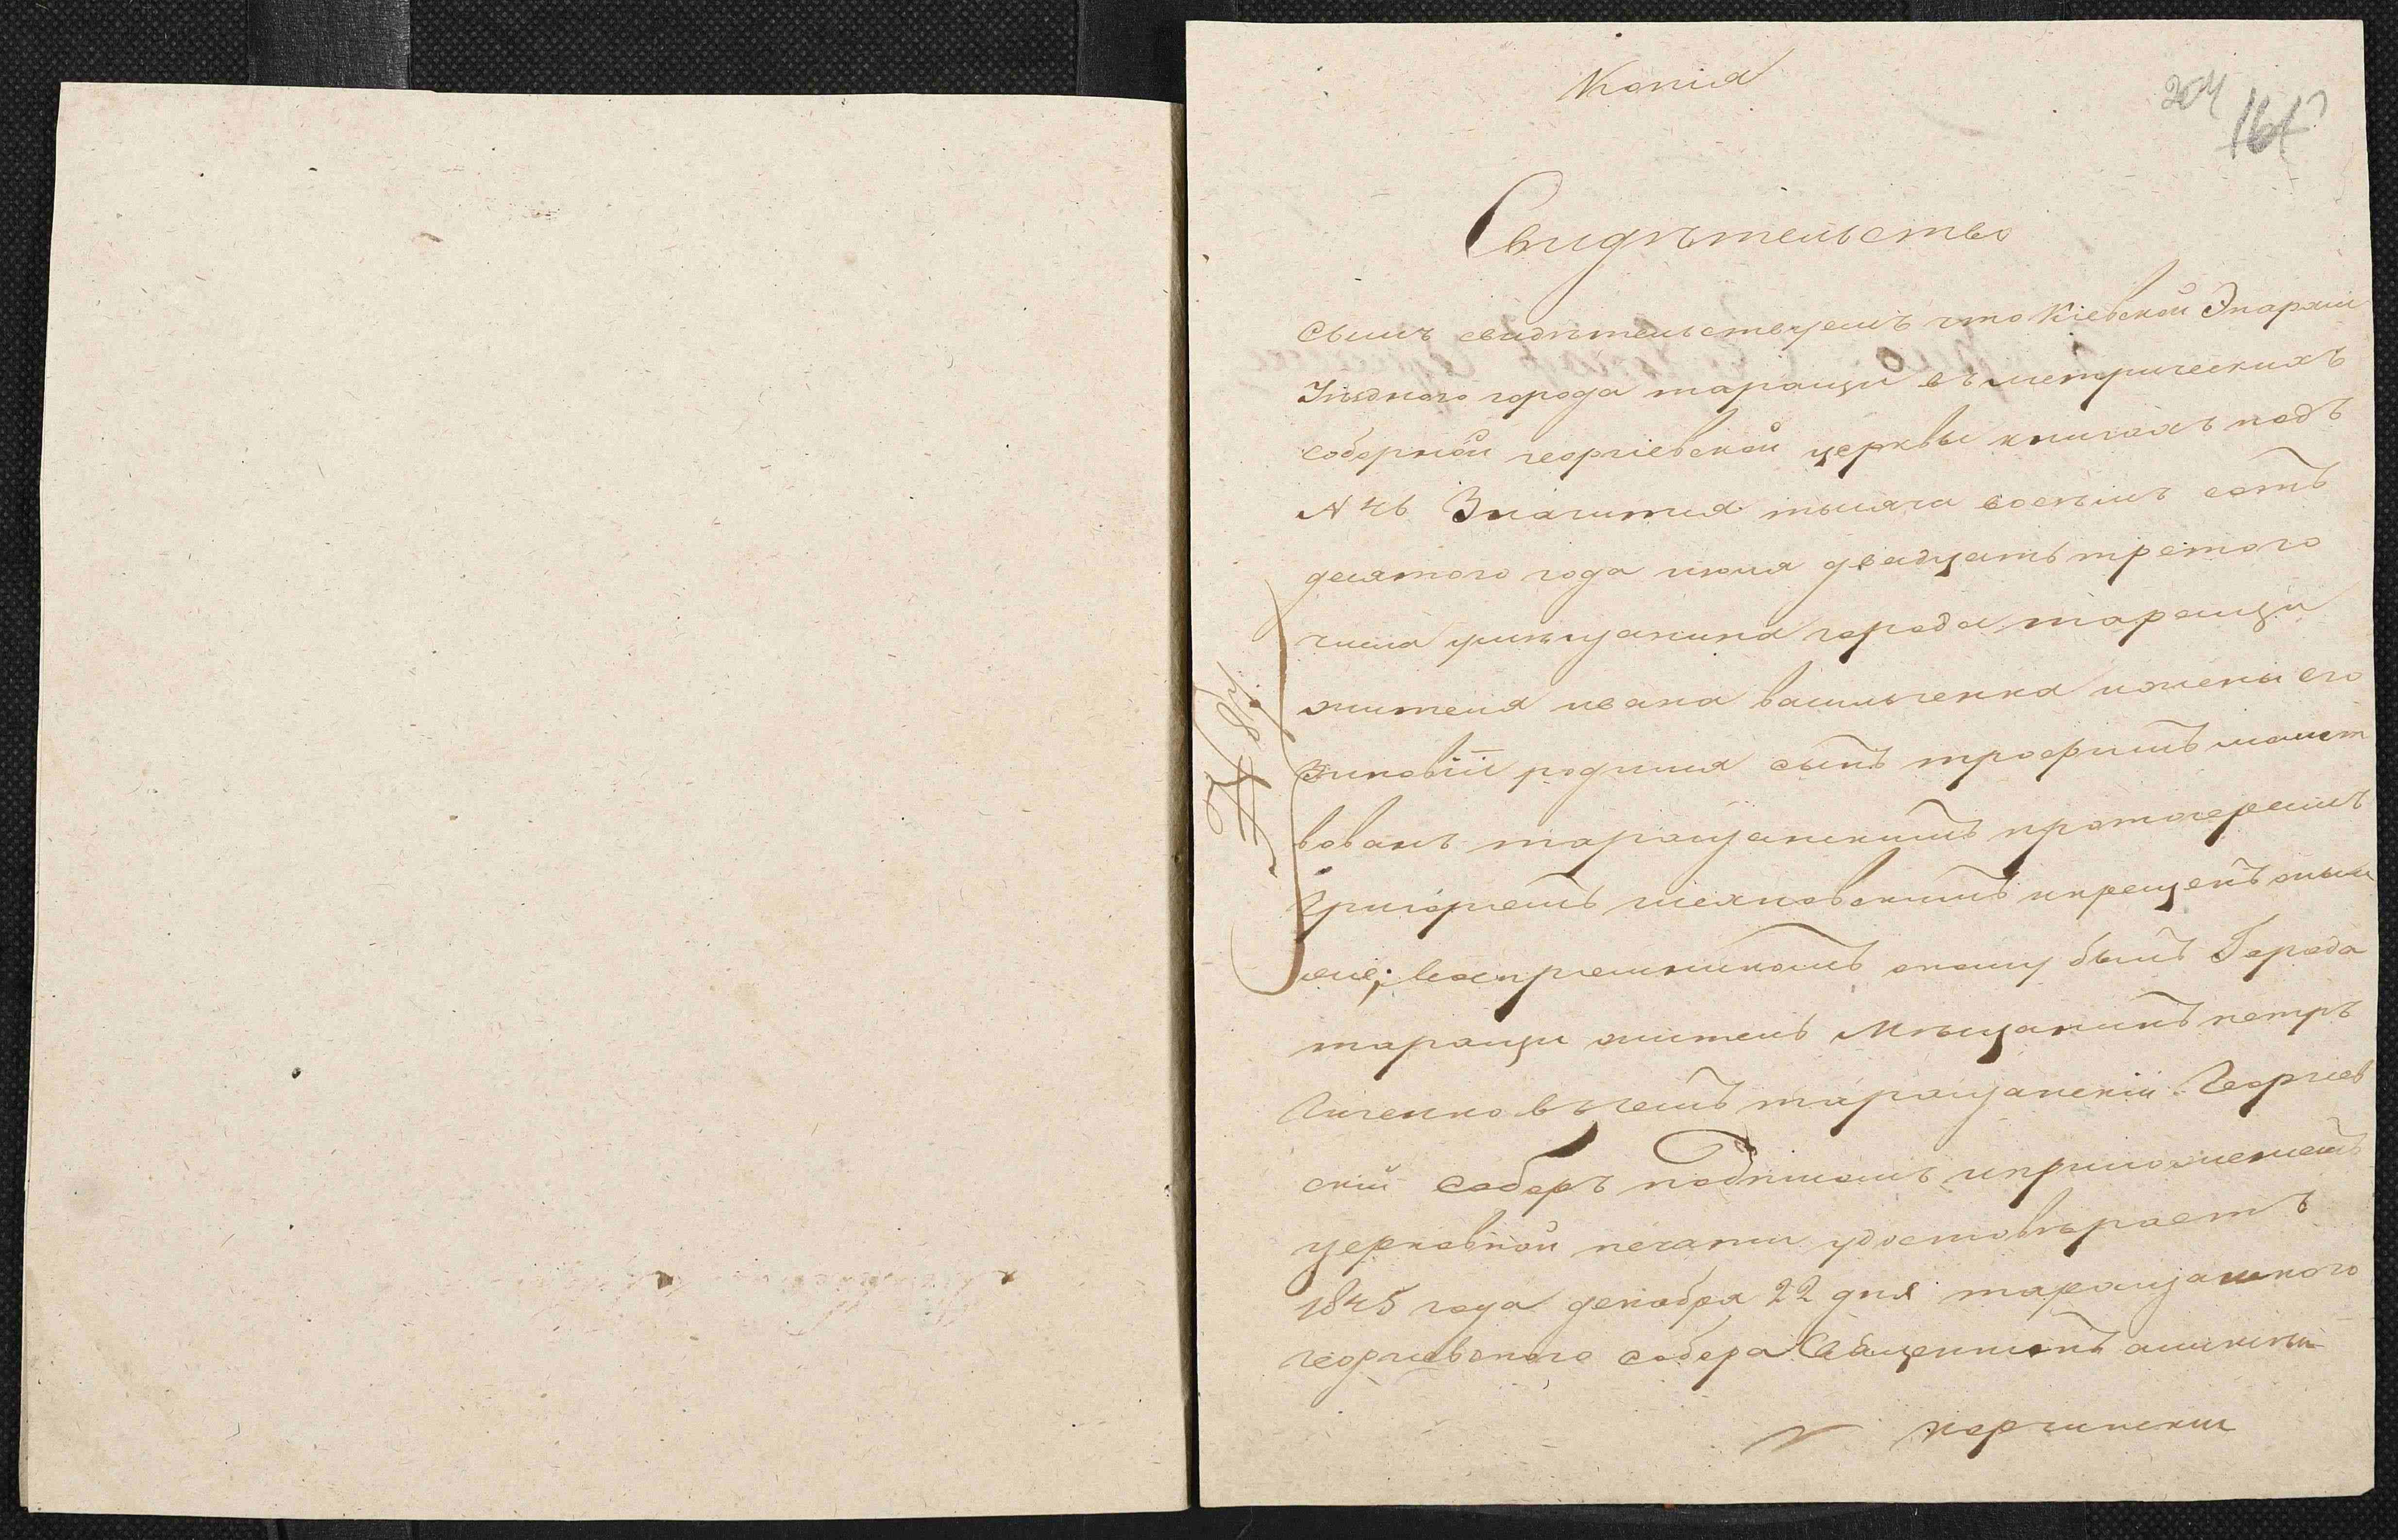 Копия
204
164
Свидѣтельство
Сымъ свидѣтельствуемъ что Кіевской Эпархіи
Уѣздного города таращи въ метрическихъ
соборной георгіевской церквы книгахъ подъ
№ 46 Значится тысяча восѣмъ сотъ
десятого года июля двадцать третого
числа умѣщанина города таращи
жителя ивана васильченка ижены его
Зиновіи родился сынъ трофимъ молит
вованъ таращанскимъ протоіереимъ
Григориемъ и крещенъ оным
же; Восприемникомъ оному былъ Города
таращи житель Мѣщанинъ петръ
вчемъ таращанскій Георгіев
скій Соборъ подписомъ иприложениемъ
церковной печати удостовѣраетъ
1845 года декабря 22 дня таращанского
георгиевского собора Священникъ